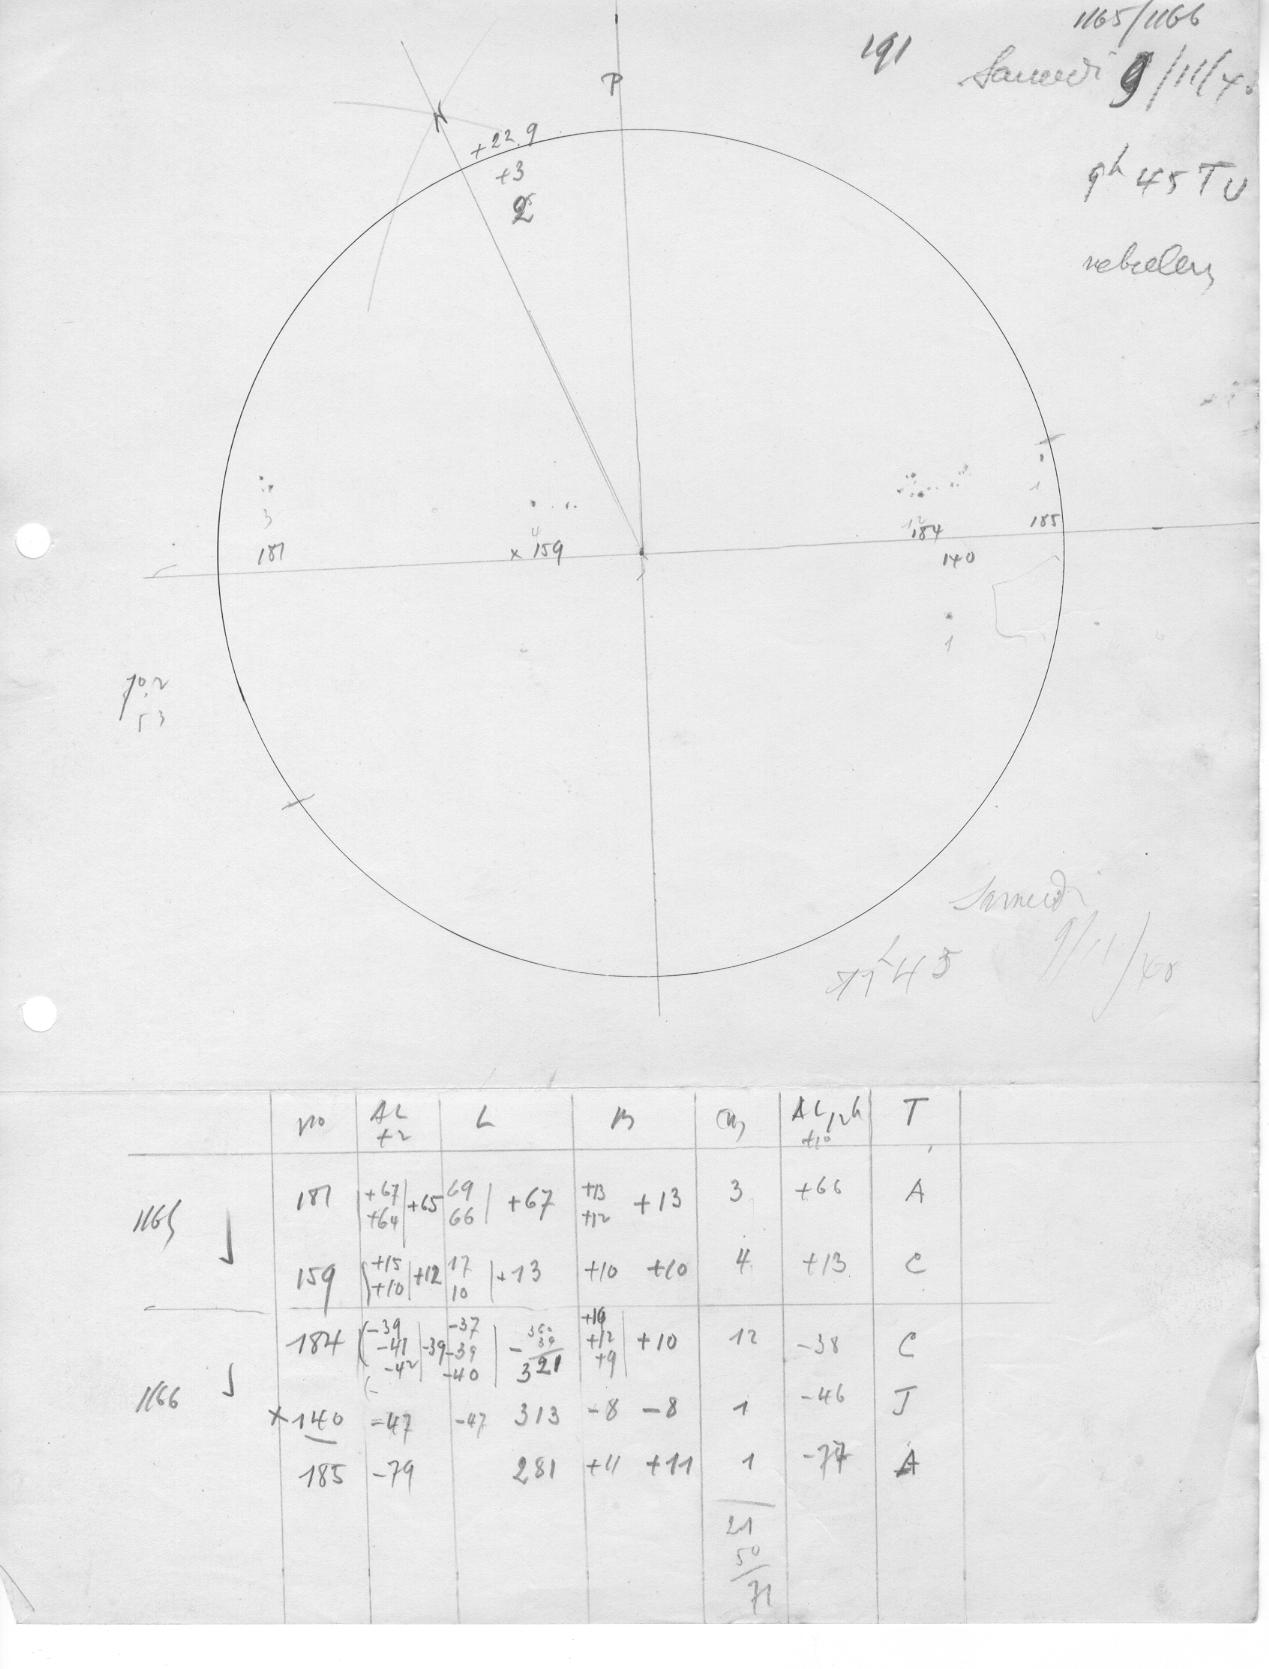 1165/1166
191
Samedi 9/11/4
P
9h 45 TU
N
+22.9
+3
3
4
12
1
181
x 159
184
185
140
1
70.2
53
Samedi
9/11/40
11h 45
No AL +2 L B AL 12h +10 T
1165 181 +67 +64 +65 69 66 +67 +13 +12 +13 3 +66 A
159 +15 +10 +12 17 10 +13 +10 +10 4 +13 C
184 -39 -41 -42 -39 -37 -39 -40 - 360 39 321 +10 +12 +9 +10 12 -38 C
1166 x140 -47 -47 313 -8 -8 1 -46 J
185 -79 281 +11 +11 1 -77 A
21
50
71